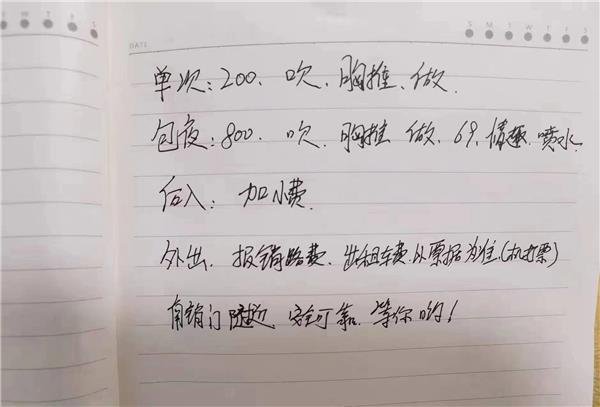 DATE
S M T W T F S
单次：200、吹、胸推、做.
包夜：800、吹、胸推 做、69、情趣、喷水.
后入：加小费.
外出、报销路费、出租车费以票据为准(机打票)
安全可靠、等你哟！